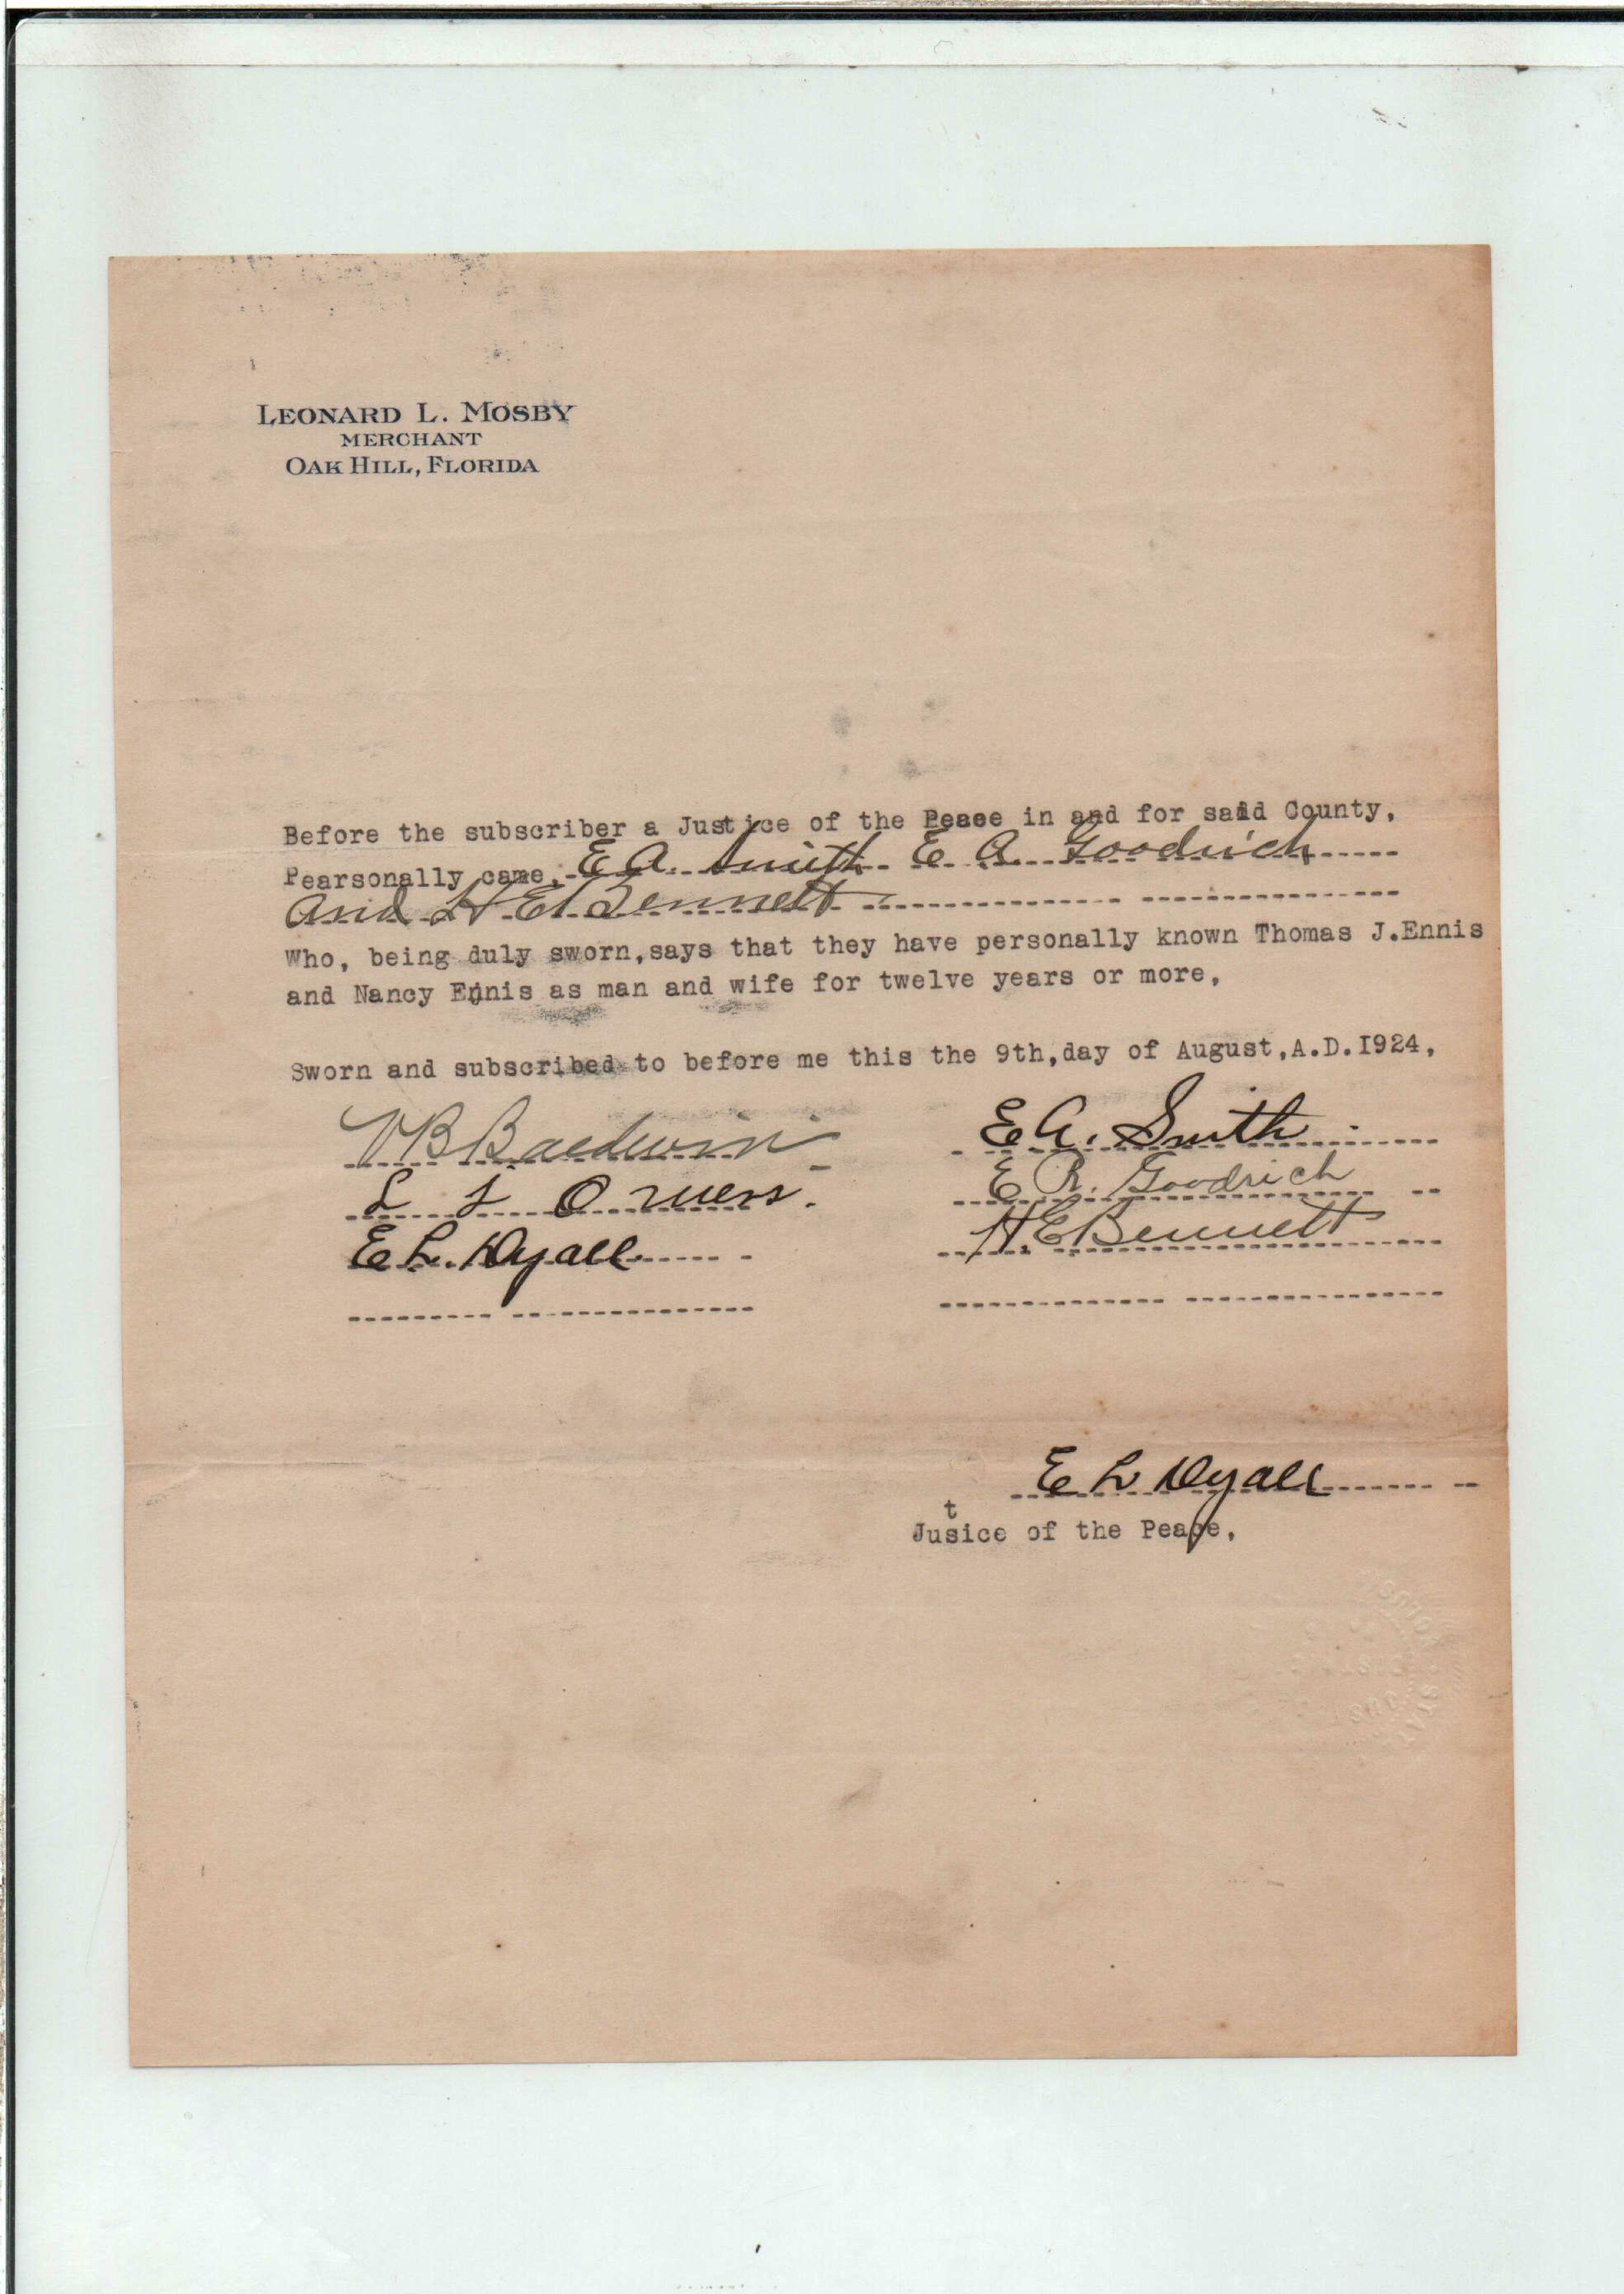 LEONARD L. MOSBY
MERCHANT
OAK HILL, FLORIDA
Before the subscriber a Justice of the Peace in and for said County,
Pearsonally came, E A. Smith E A. Goodrich
and H. E. Bennett
Who, being duly sworn,says that they have personally known Thomas J.Ennis
and Nancy Ennis as man and wife for twelve years or more,
Sworn and subscribed to before me this the 9th,day of August,A.D.I924,
V B Baldwin E A. Smith
E R. Goodrich
E L. Dyall H. E Bennett
E L Dyall
t
Jusice of the Peace,